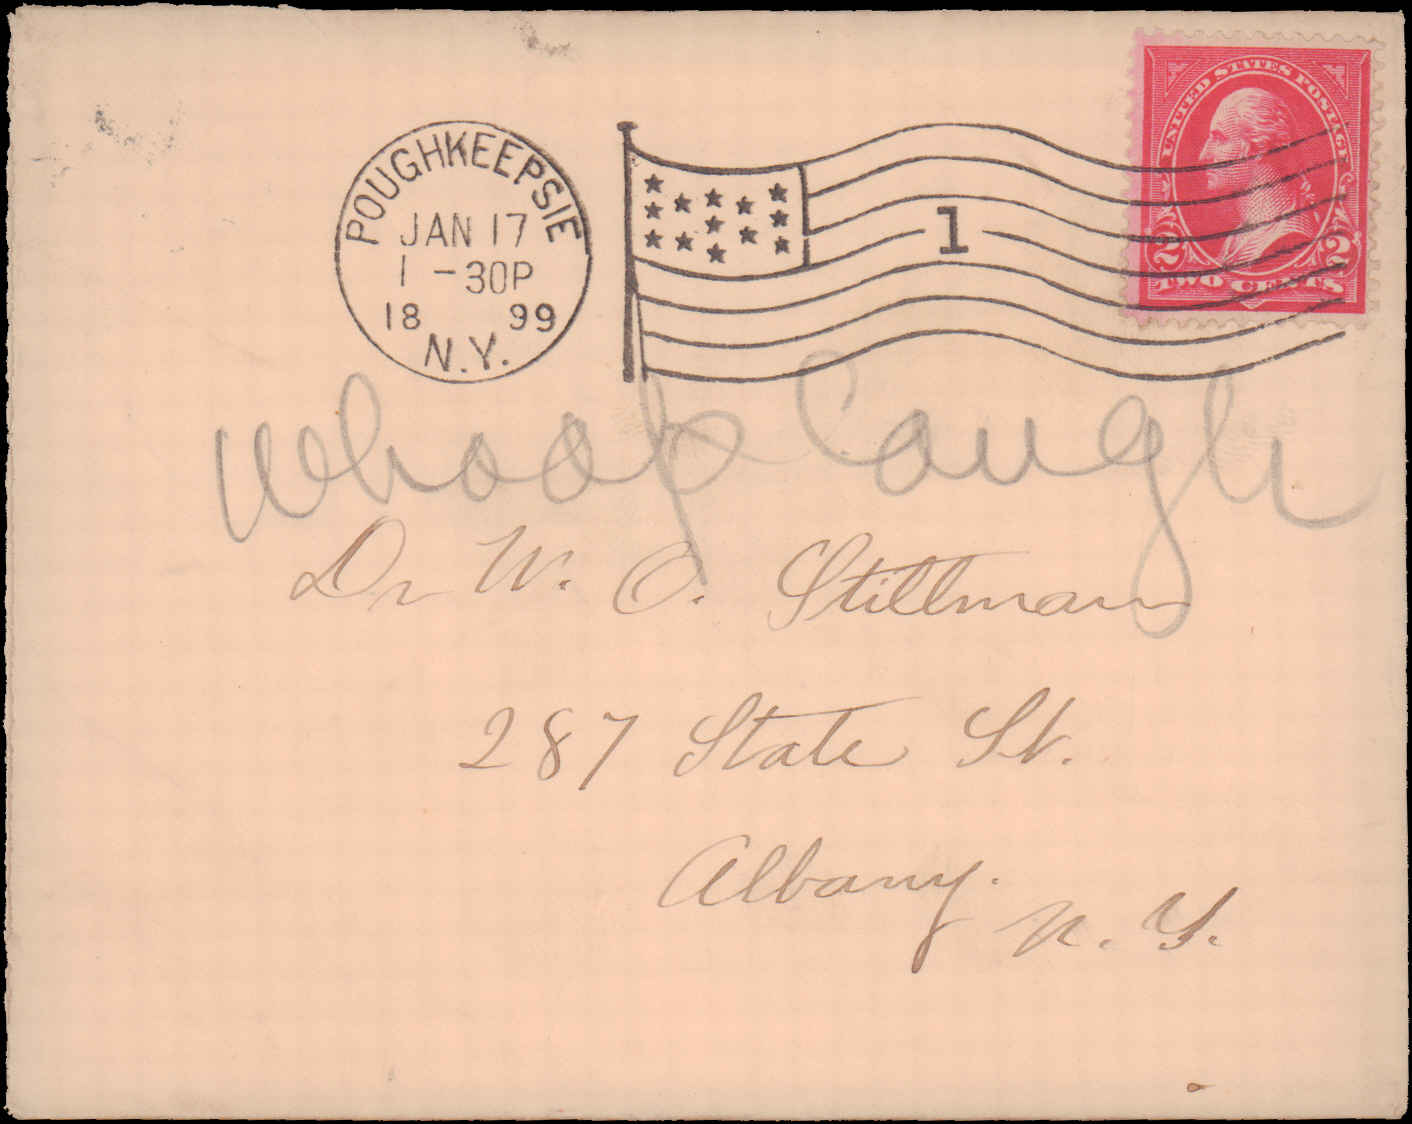 UNITED STATES POSTAGE
2 2
TWO CENTS
POUGHKEEPSIE
JAN 17
1 -30P
18 99
N.Y.
1
Whoop Cough
Dr W. O. Stillman
287 State St.
Albany.
N. Y.